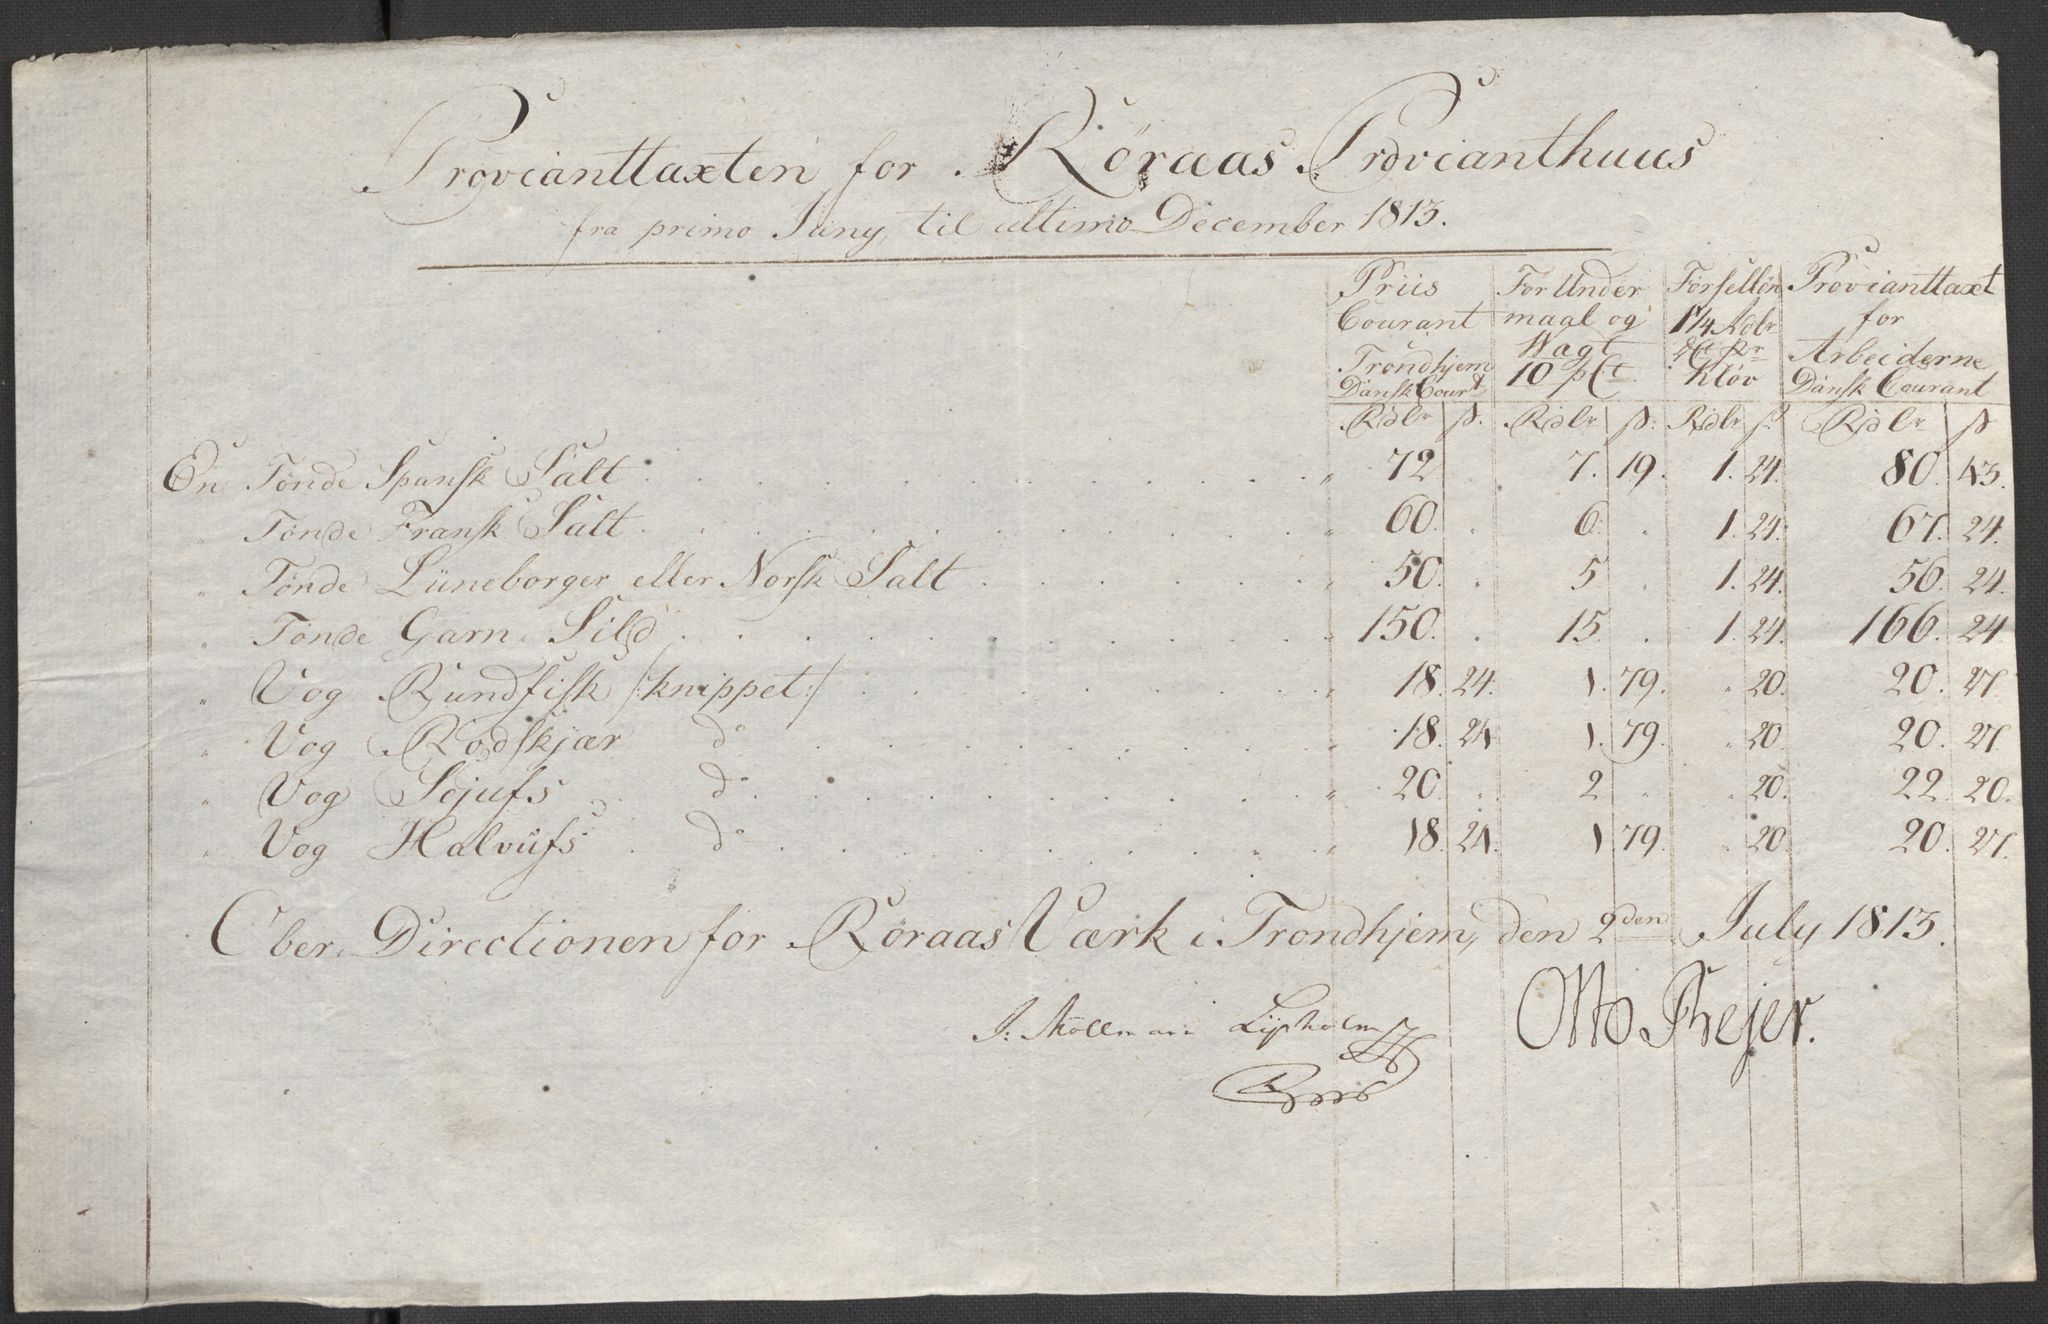 Provianttaxten for Röraas Provianthuus
fra primo Juny til ultimo December 1813.
Priis Courant Trondhjem Dansk Courᵗ | For Under maal og Wægt 10 pCt. | Førsellön 1¼ Rdlr Kløv | Provianttaxt for Arbeiderne Dansk Courant
Rdlr ß. Rdlr ß. Rdlr ß. Rdlr ß
En Tönde Spansk Salt . . . " 72 . 7. 19. 1. 24. 80. 43.
" Tønde Fransk Salt . . . " 60. . 6. . 1. 24. 67. 24.
" Tønde Lüneborger eller Norsk Salt . . . " 50. . 5 . 1. 24. 56. 24.
" Tønde Garn Sild . . . " 150. . 15. . 1. 24. 166. 24
" Vog Rundfisk /:knippet:/ . . . " 18. 24. 1. 79. " 20. 20. 27.
" Vog Rodskjær do . . . " 18. 24 1. 79. " 20. 20. 27
" Vog Sejufs do . . . " 20. " 2 " " 20. 22. 20.
" Vog Halvufs do . . . " 18. 24. 1. 79. " 20. 20. 27.
Ober Directionen for Röraas Værk i Trondhjem, den 2den July 1813.
J: Möllmann Lÿsholm Otto Bejer.